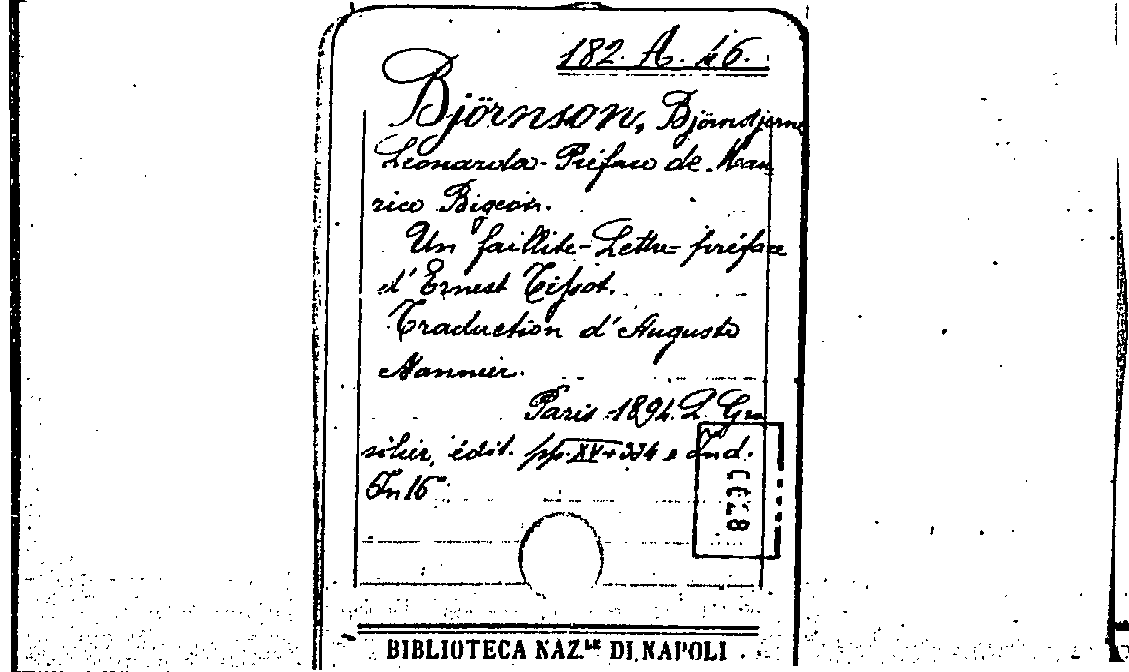 182. A. 46.
Björnson, Björnstjerne
Leonarda - Préface de Mau
rice Bigeon.
Un faillite - Lettre-préface
d'Ernest Tissot.
Traduction d'Auguste
Monnier.
Paris 1894. L. Gra
silier, édit. pp. XV+334 e Ind.
In 16º
0028
BIBLIOTECA NAZ.LE DI NAPOLI